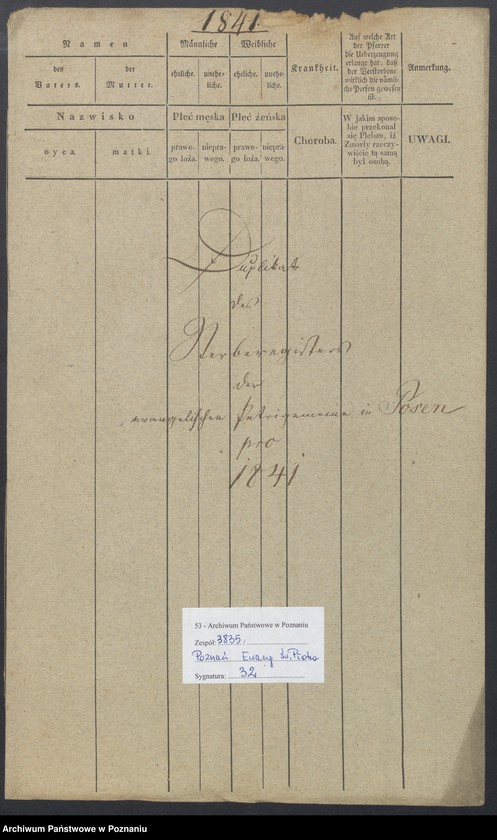 1841.
Namen
des Vaters.
der Mutter.
Männliche
eheliche.
unehe-
liche.
Weibliche
eheliche.
unehe-
liche.
Krankheit.
Auf welche Art
der Pfarrer
die Ueberzeugung
erlangt hat, daß
der Verstorbene
wirklich die näml-
iche Person gewesen
ist.
Anmerkung.
Nazwisko
oyca.
matki.
Płeć męska
prawe-
go łoża.
niepra-
wego.
Płeć żeńska
prawe-
go łoża.
niepra-
wego.
Choroba.
W jakim sposo-
bie przekonał
się Pleban, iż
Zmarły rzeczy-
wiście tą samą
był osobą.
UWAGI.
Duplikat
des
Sterberegisters
der
evangelischen Petrigemeine in Posen
pro
1841
53 - Archiwum Państwowe w Poznaniu
Zespół: 3835,
Poznań Ewang Św. Piotra
Sygnatura: 32
Archiwum Państwowe w Poznaniu